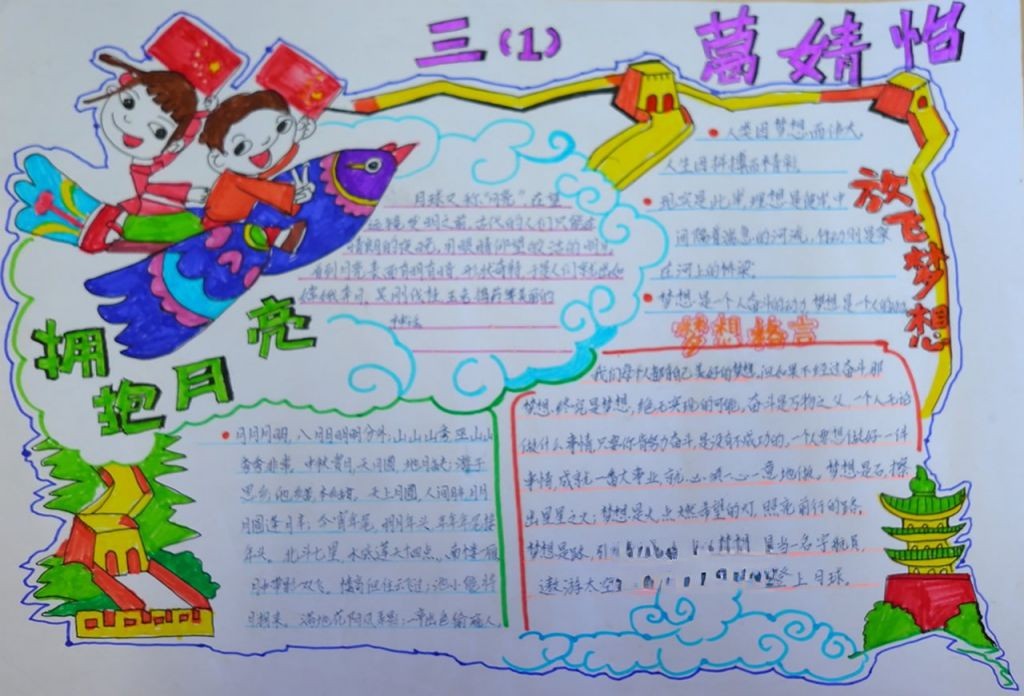 三(1) 葛婧怡
拥抱月亮
放飞梦想
月球又称“月亮”,在望
远镜发明之前,古代的人们只能在
晴朗的夜晚,用眼睛仰望皎洁的明月
看到月亮表面有明有暗,形状奇特,于是人们就出
嫦娥奔月、吴刚伐桂、玉兔捣药等美丽的
神话
•人类因梦想而伟大,
人生因拼搏而精彩。
•现实是此岸,理想是彼岸,中
间隔着湍急的河流,行动则是架
在河上的桥梁。
•梦想是一个人奋斗的动力,梦想是一个人的动
梦想格言
我们每个人都有自己美好的梦想,但如果不经过奋斗,那
梦想终究是梦想,绝无实现的可能,奋斗是万物之父,一个人无论
做什么事情,只要你肯努力奋斗,是没有不成功的,一个人要想做好一件
事情,成就一番大事业,就心一意地做。梦想是石,擦
出星星之火;梦想是火,点燃希望的灯,照亮前行的路,
梦想是路,引 是当一名宇航员,
遨游太空, 登上月球。
•月月月明,八月月明明分外;山山山秀,巫山山
秀秀非常。中秋赏月,天月圆,地月缺;游子
思乡,他。天上月圆,人间半月,月
月圆逢月半,今宵年尾,明月年头,年年年尾接
年头。北斗七星,水底连天十四点,南楼一雁
月中带影一双飞。楼高但任云飞过;池小能将
月捞来。满地花阴风弄影;一亭山色